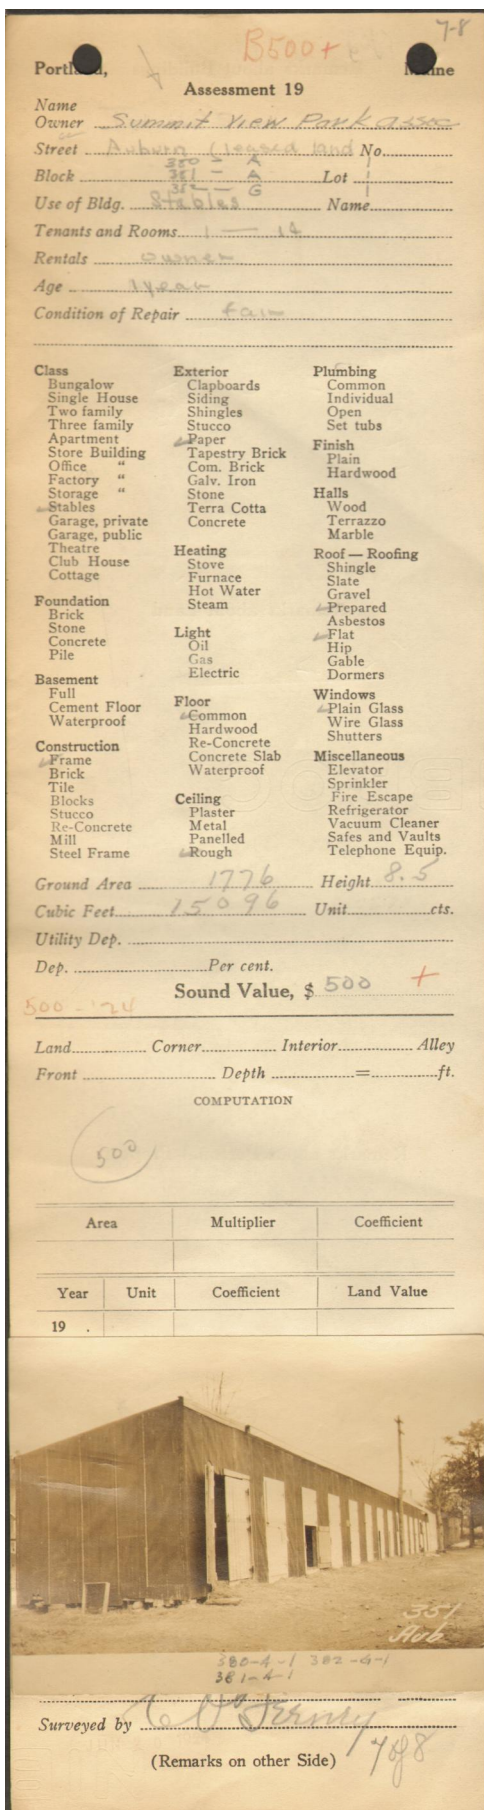 7-8
B500+
Portland, Maine
Assessment 19
Name
Owner Summit View Park Assoc
Street Auburn (leased land No.
380 - A
Block 381 - A Lot 1
382 - G
Use of Bldg. Stables Name
Tenants and Rooms 1 — 14
Rentals owner
Age 1 year
Condition of Repair fair
Class
Bungalow
Single House
Two family
Three family
Apartment
Store Building
Office "
Factory "
Storage "
Stables
Garage, private
Garage, public
Theatre
Club House
Cottage
Foundation
Brick
Stone
Concrete
Pile
Basement
Full
Cement Floor
Waterproof
Construction
Frame
Brick
Tile
Blocks
Stucco
Re-Concrete
Mill
Steel Frame
Exterior
Clapboards
Siding
Shingles
Stucco
Paper
Tapestry Brick
Com. Brick
Galv. Iron
Stone
Terra Cotta
Concrete
Heating
Stove
Furnace
Hot Water
Steam
Light
Oil
Gas
Electric
Floor
Common
Hardwood
Re-Concrete
Concrete Slab
Waterproof
Ceiling
Plaster
Metal
Panelled
Rough
Plumbing
Common
Individual
Open
Set tubs
Finish
Plain
Hardwood
Halls
Wood
Terrazzo
Marble
Roof — Roofing
Shingle
Slate
Gravel
Prepared
Asbestos
Flat
Hip
Gable
Dormers
Windows
Plain Glass
Wire Glass
Shutters
Miscellaneous
Elevator
Sprinkler
Fire Escape
Refrigerator
Vacuum Cleaner
Safes and Vaults
Telephone Equip.
Ground Area 1776 Height 8.5
Cubic Feet 15096 Unit cts.
Utility Dep.
Dep. Per cent.
Sound Value, $ 500 +
500 - '24
Land Corner Interior Alley
Front Depth = ft.
COMPUTATION
500
Area Multiplier Coefficient
Year Unit Coefficient Land Value
19 .
351
Aub
380-A-1 382-G-1
381-A-1
Surveyed by
(Remarks on other Side)
7 of 8